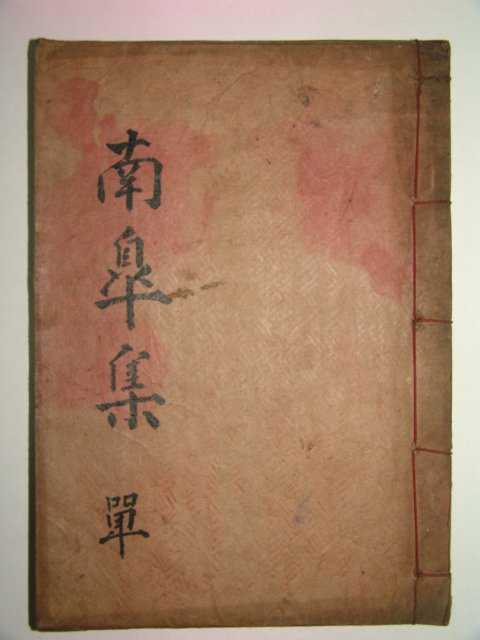 南皐集
單